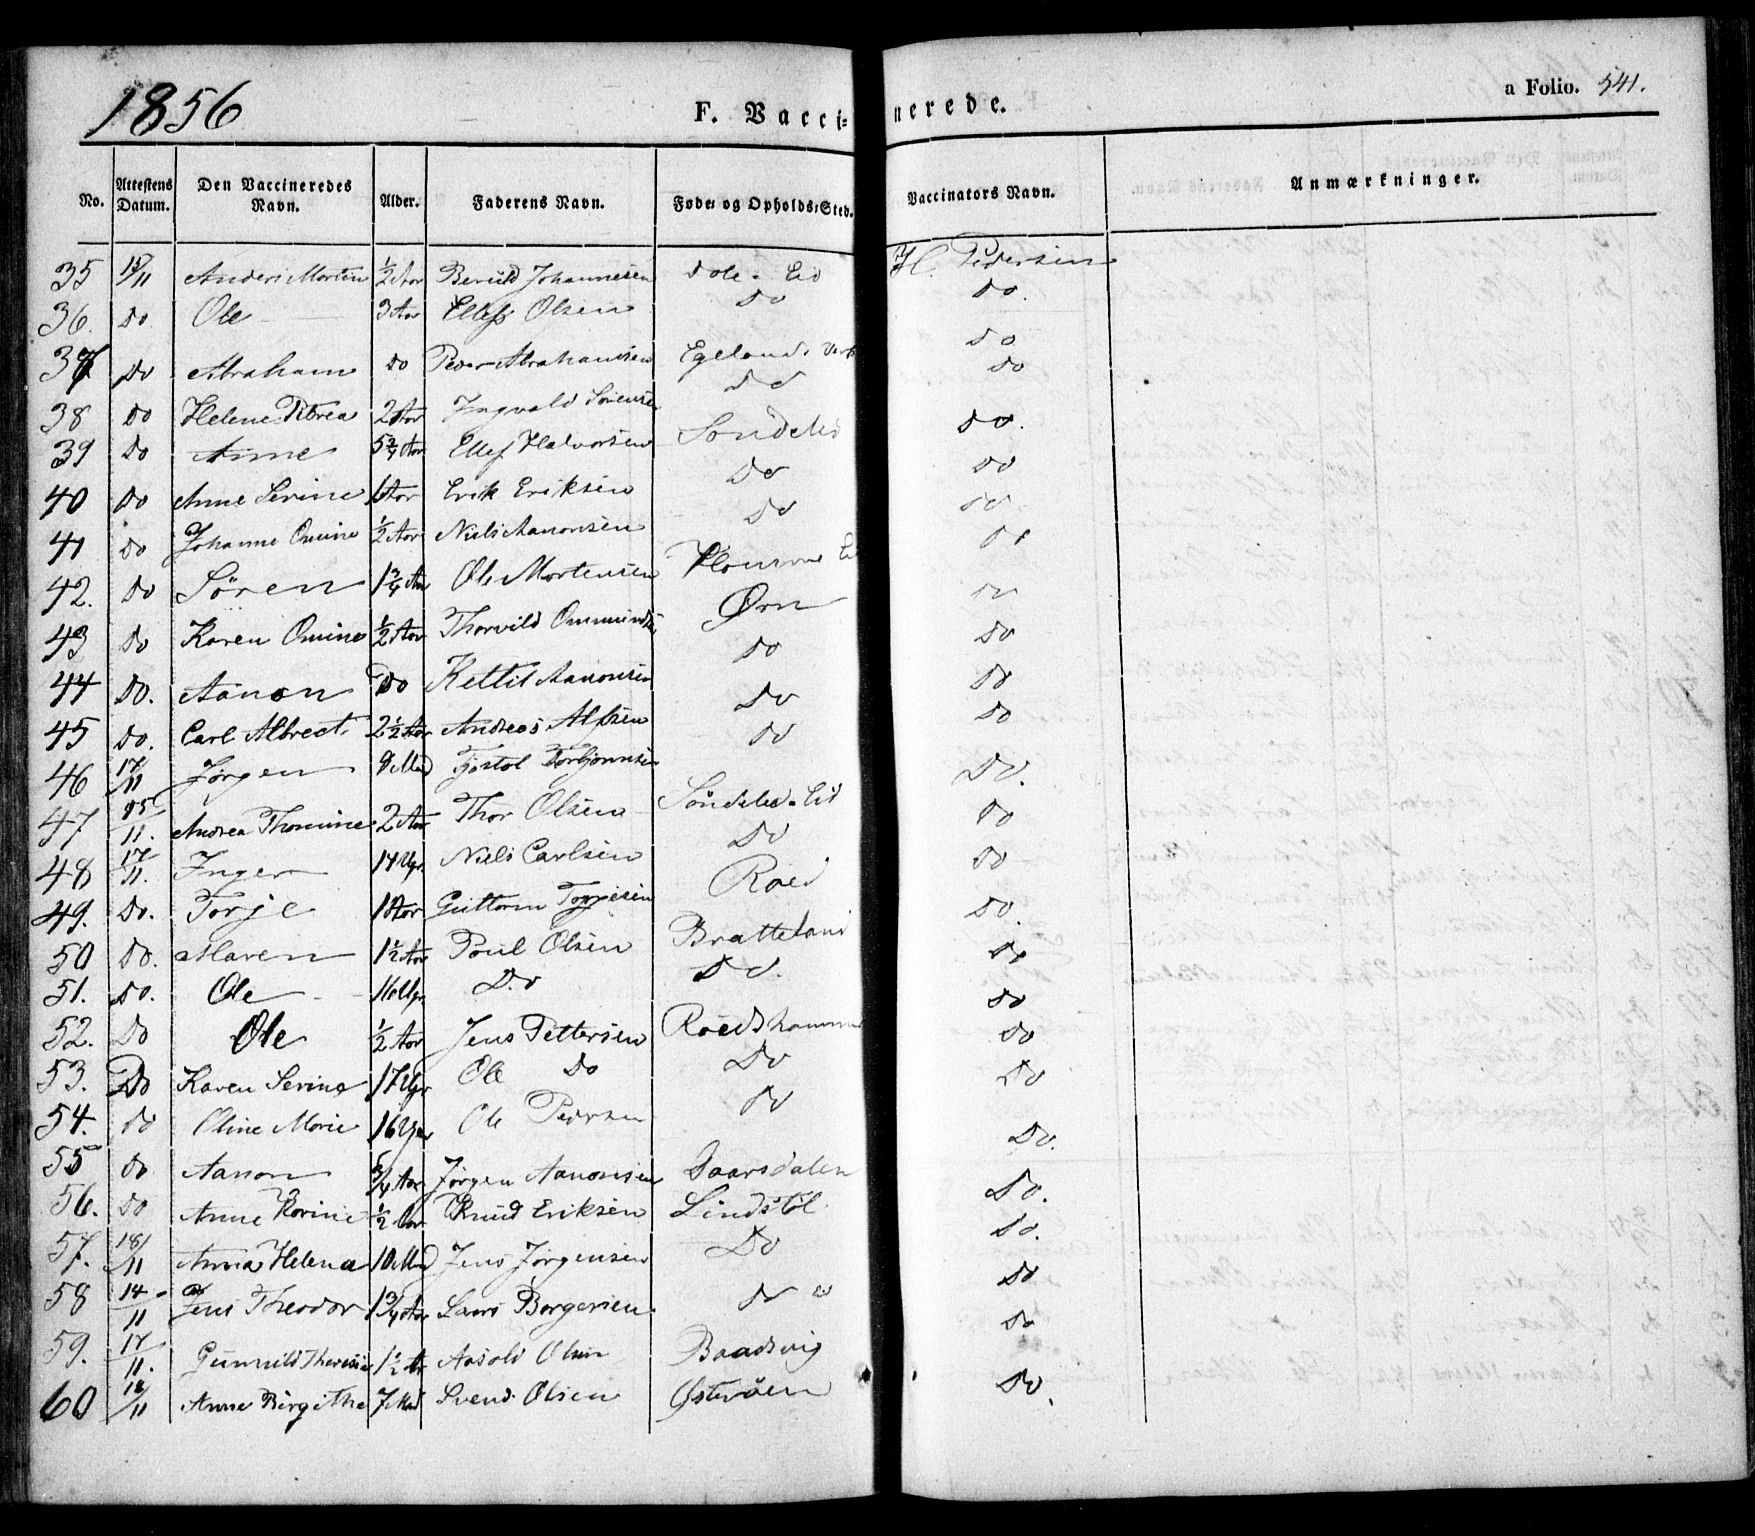 1856
F. Vaccinerede.
a Folio. 541.
No. Attestens Datum. Den Vaccineredes Navn. Alder. Faderens Navn. Føde- og Opholds-Sted. Vaccinators Navn. Anmærkninger.
35 15/11 Anders Morten 1/2 Aar Beruld Johannesen Dole - Eid H. Pedersen
36. Do Ole 3 Aar Ellef Olsen Do Do.
37 Do Abraham Do Peder Abrahamsen Egelands Verk Do
38 Do Helene Petrea 2 Aar Ingvald Sørensen Do Do
39 Do Anne 5 3/4 Aar Ellef Halvorsen Søndeled Do.
40 Do Anne Serine 1 Aar Erik Eriksen Do Do
41 Do Johanne Omine 1/2 Aar Niels Aanonsen Do Do
42. Do Sören 1 3/4 Aar Ole Mortensen Do
43 Do Karen Omine 1/2 Aar Thorvild Ommundsen Ørn Do
44 Do. Aanon Do Kettil Aanonsen Do Do
45 Do. Carl Albrect 2 1/2 Aar Andreas Alfsen Do Do
46 17/11 Jørgen 9 Md Tjøstol Torbjørnsen Do Do
47 15/11. Andrea Thomine 2 Aar Thor Olsen Søndeled - Eid Do.
48 17/11. Inger 14 Ugr Niels Carlsen Do Do
49. Do. Torje 1 Aar Guttorm Terjesen Roed Do
50 Do. Maren 1 1/2 Aar Poul Olsen Bratteland Do.
51. Do. Ole 16 Ugr Do Do. Do
52. Do Ole 1/2 Aar Jens Pettersen Roedshammer Do
53. Do Karen Serine 17 Ugr Ole Do Do Do
54. Do Oline Marie 16 Uger Ole Pedersen Do Do
55 Do Aanon 5/4 Aar Jørgen Aanonsen Daarsdalen Do.
56. Do Anne Karine 1/2 Aar Knud Eriksen Lindstöl Do.
57. 18/11 Anna Helena 10 Md Jens Jørgensen Do Do.
58 14/11 Jens Theodor 1 3/4 Aar Lars Børgesen Do Do
59. 17/11. Gunnild Theresie 1 1/2 Ar Aasold Olsen Baasvig Do
60 18/11 Anne Birgithe 7 Md Svend Olsen Østerøen Do.